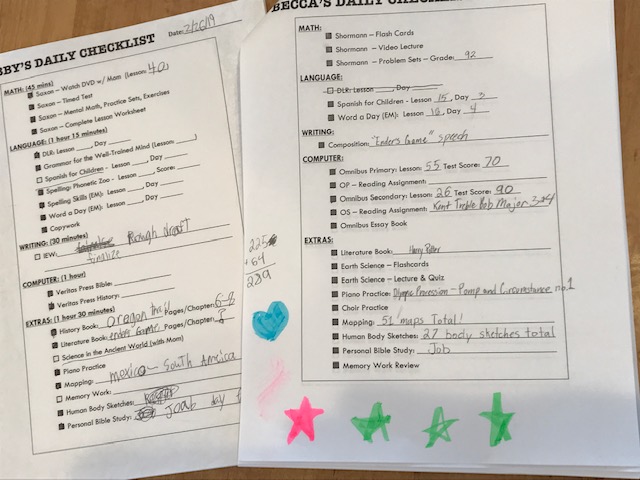 BBY'S DAILY CHECKLIST
Date: 2/26/19
MATH: (45 mins)
Saxon – Watch DVD w/ Mom (Lesson: 40)
Saxon – Timed Test
Saxon – Mental Math, Practice Sets, Exercises
Saxon – Complete Lesson Worksheet
LANGUAGE: (1 hour 15 minutes)
DLR: Lesson ___, Day ___
Grammar for the Well-Trained Mind (Lesson: ___)
Spanish for Children - Lesson ___, Day ___
Spelling: Phonetic Zoo - Lesson ___, Score: ___
Spelling Skills (EM): Lesson ___, Day ___
Word a Day (EM): Lesson ___, Day ___
Copywork
WRITING: (30 minutes)
IEW: Rough draft
finalize
COMPUTER: (1 hour)
Veritas Press Bible:
Veritas Press History:
EXTRAS: (1 hour 30 minutes)
History Book: Oregon trail Pages/Chapter: 6-8
Literature Book: Enders Game Pages/Chapter:
Science in the Ancient World (with Mom)
Piano Practice
Mapping: Mexico – South America
Memory Work:
Human Body Sketches:
Personal Bible Study: Joab
BECCA'S DAILY CHECKLIS
MATH:
Shormann – Flash Cards
Shormann – Video Lecture
Shormann – Problem Sets – Grade: 92
LANGUAGE:
DLR: Lesson ___, Day ___
Spanish for Children - Lesson 15, Day 3
Word a Day (EM): Lesson 18, Day 4
WRITING:
Composition: "Enders Game" speech
COMPUTER:
Omnibus Primary: Lesson 55 Test Score: 70
OP – Reading Assignment:
Omnibus Secondary: Lesson 26 Test Score: 90
OS – Reading Assignment: Kent Treble Bob Major 3+4
Omnibus Essay Book
EXTRAS:
Literature Book: Harry Potter
Earth Science – Flashcards
Earth Science – Lecture & Quiz
Piano Practice: Olympic Procession – Pomp and Circumstance no. 1
Choir Practice
Mapping: 51 maps Total!
Human Body Sketches: 27 body sketches total
Personal Bible Study: Job
Memory Work Review
225
+ 64
289